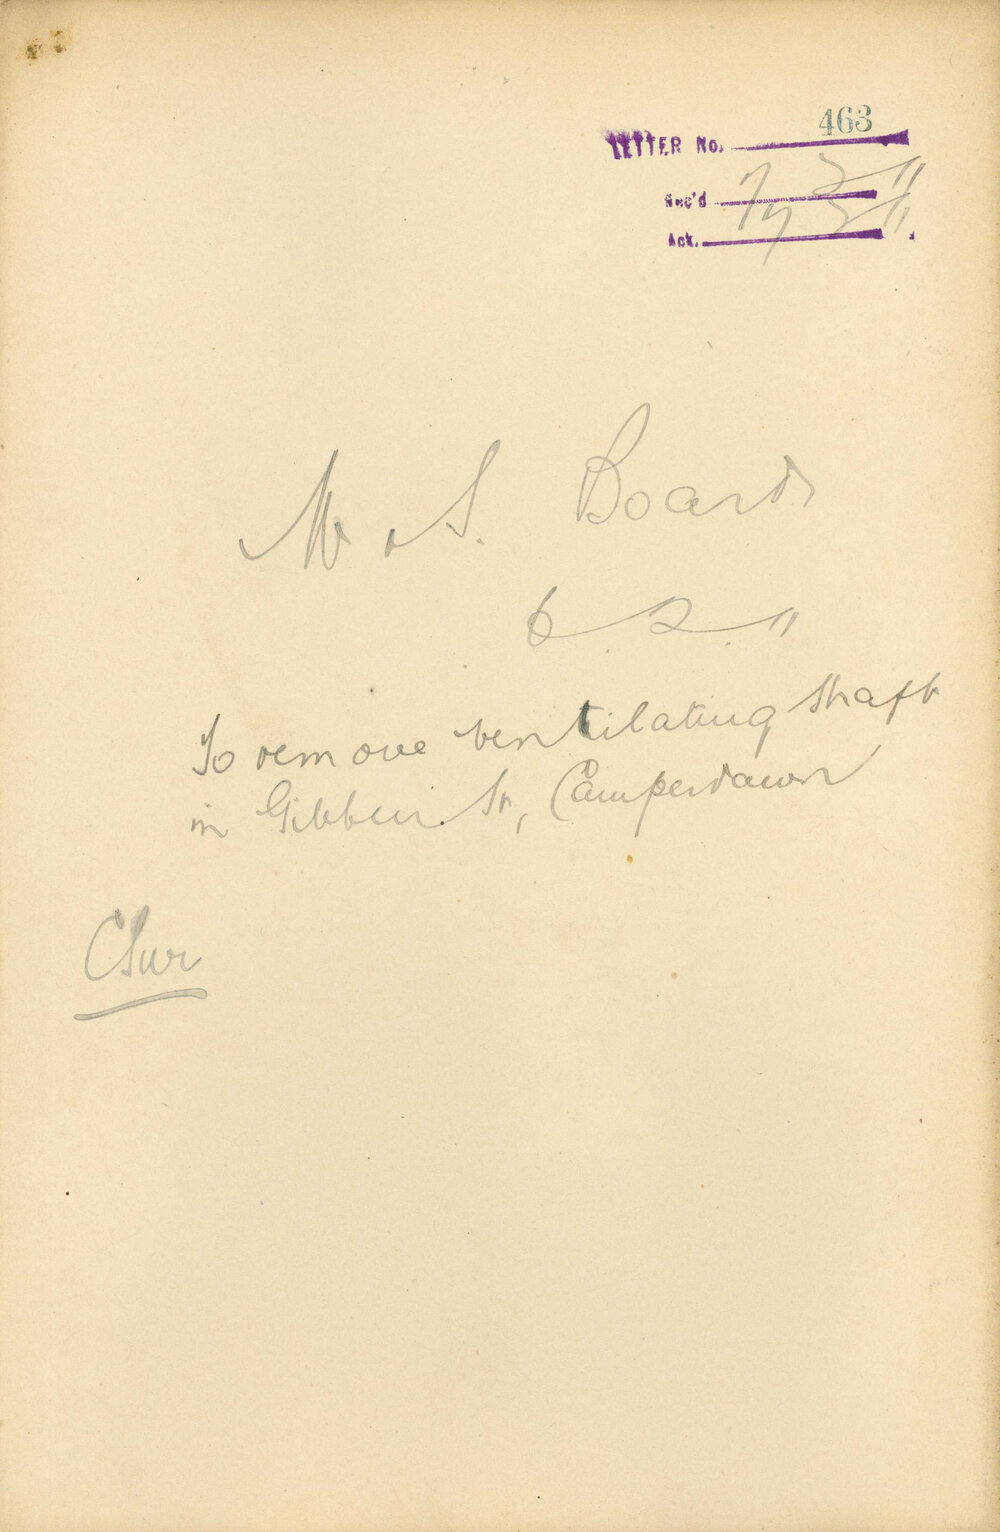 463
LETTER No.
Rec'd 7 2 11
Ack. 7 2 11
W & S. Board
6 . 2 . 11
To remove ventilating shaft
in Gibbens St, Camperdown